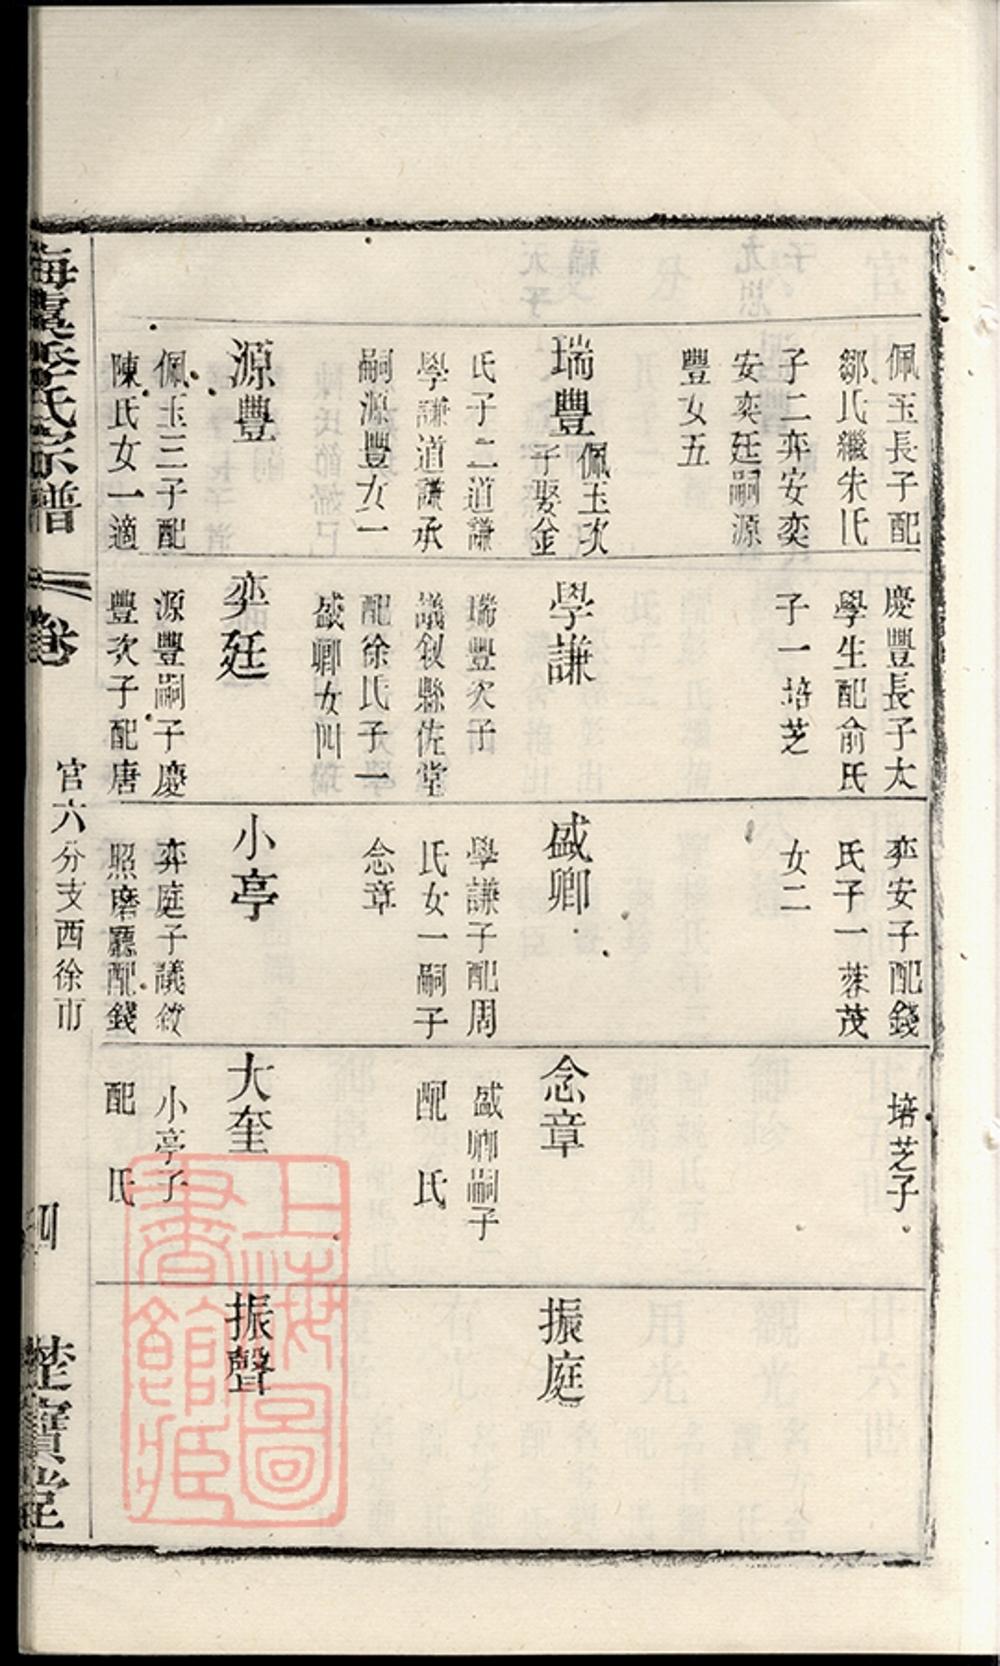 佩玉長子配
鄒氏繼朱氏
子二弈安奕
安奕廷嗣源
豐女五
瑞豐
佩玉次
子娶金
氏子二道謙
學謙道謙承
嗣源豐女一
源豐
佩玉三子配
陳氏女一適
慶豐長子太
學生配俞氏
子一培芝
學謙
瑞豐次子
議敘縣佐堂
配徐氏子一
盛卿女四
奕廷
源豐嗣子慶
豐次子配唐
弈安子配錢
氏子一蓉茂
女二
盛卿
學謙子配周
氏女一嗣子
念章
小亭
弈庭子議敘
照磨廳配錢
培芝子
念章
盛卿嗣子
配 氏
大奎
小亭子
配 氏
振庭
振聲
海虞 氏宗譜
卷
官六分支西徐市
四
楚寶堂
上海圖書館藏